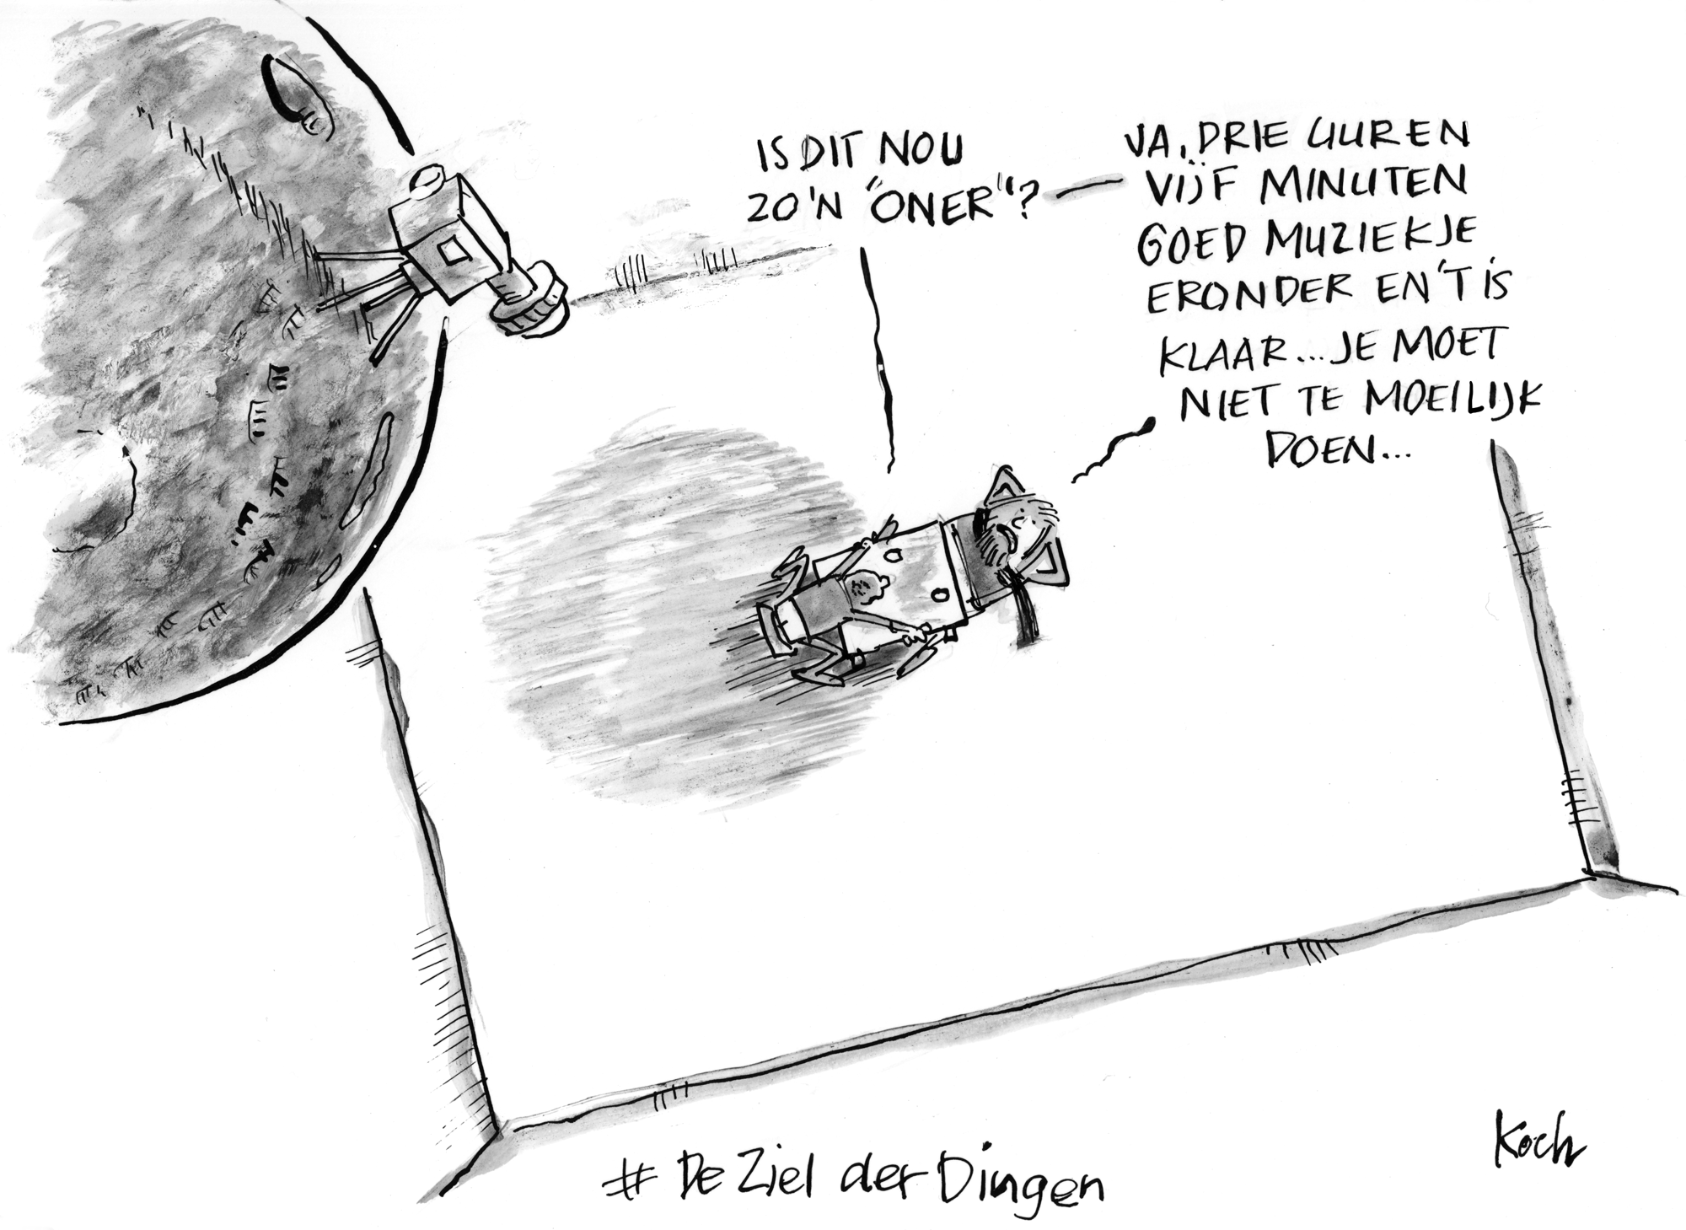 IS DIT NOU
ZO'N "ONER"?
JA, DRIE UUR EN
VIJF MINUTEN
GOED MUZIEKJE
ERONDER EN 'T IS
KLAAR...JE MOET
NIET TE MOEILIJK
DOEN...
# De Ziel der Dingen
Koch